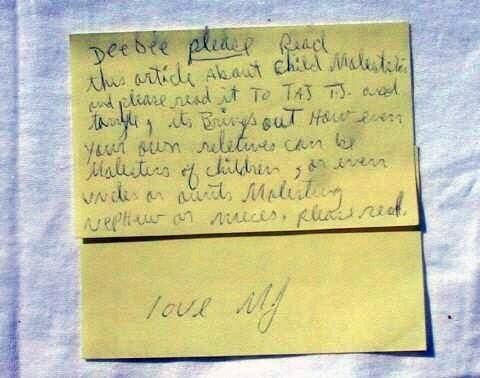 DeeDee please Read
this article About Child Molestation
and please read it TO TAJ TJ. and
its Brings out How even
Your own reletives can be
Molesters of children, or even
uncles or aunts Molesting
nephew or nieces. please read.
love MJ